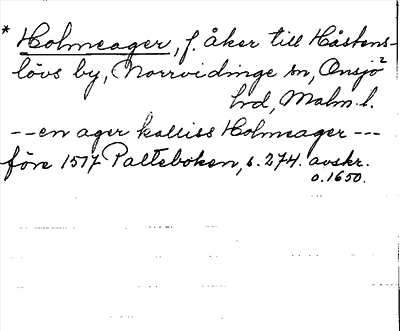 * Holmeager, f. åker till Håstens-
lövs by, Norrvidinge sn, Onsjö²
hd, Malm. l.
--en ager kalliss Holmeager---
före 1517 Palteboken, s. 274. avskr.
o. 1650.